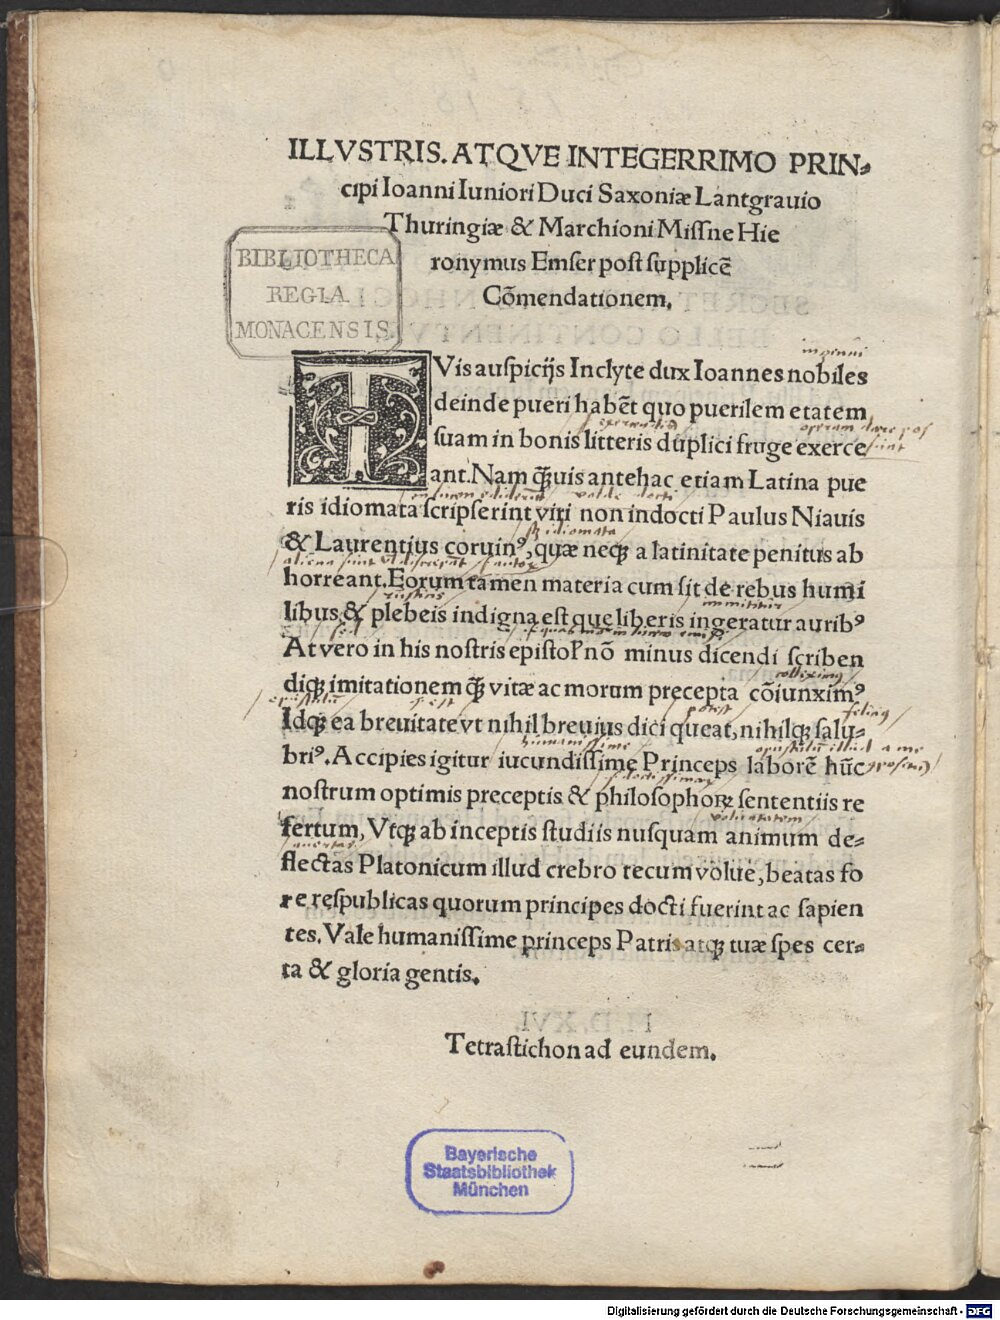 ILLVSTRIS. ATQVE INTEGERRIMO PRIN-
cipi Ioanni Iuniori Duci Saxoniæ Lantgrauio
Thuringiæ & Marchioni Missne Hie
ronymus Emser post supplicē
Cōmendationem.
BIBLIOTHECA
REGIA
MONACENSIS.
TVis auspicijs Inclyte dux Ioannes nobiles
deinde pueri habēt quo puerilem etatem
suam in bonis litteris duplici fruge exerce
ant. Nam q̄uis antehac etiam Latina pue
ris idiomata scripserint viri non indocti Paulus Niauis
& Laurentius coruinꝰ, quæ neqꝫ a latinitate penitus ab
horreant. Eorum tamen materia cum sit de rebus humi
libus & plebeis indigna est que liberis ingeratur auribꝰ
At vero in his nostris epistol' nō minus dicendi scriben
diqꝫ imitationem q̄ vitæ ac morum precepta cōiunximꝰ
Idqꝫ ea breuitate vt nihil breuius dici queat, nihilqꝫ salu-
briꝰ. Accipies igitur iucundissime Princeps laborē hūc
nostrum optimis preceptis & philosophoꝝ sententiis re
fertum, Vtqꝫ ab inceptis studiis nusquam animum de-
flectas Platonicum illud crebro tecum volue, beatas fo
re respublicas quorum principes docti fuerint ac sapien
tes. Vale humanissime princeps Patris atqꝫ tuæ spes cer-
ta & gloria gentis.
Tetrastichon ad eundem.
Bayerische
Staatsbibliothek
München
Digitalisierung gefördert durch die Deutsche Forschungsgemeinschaft - DFG